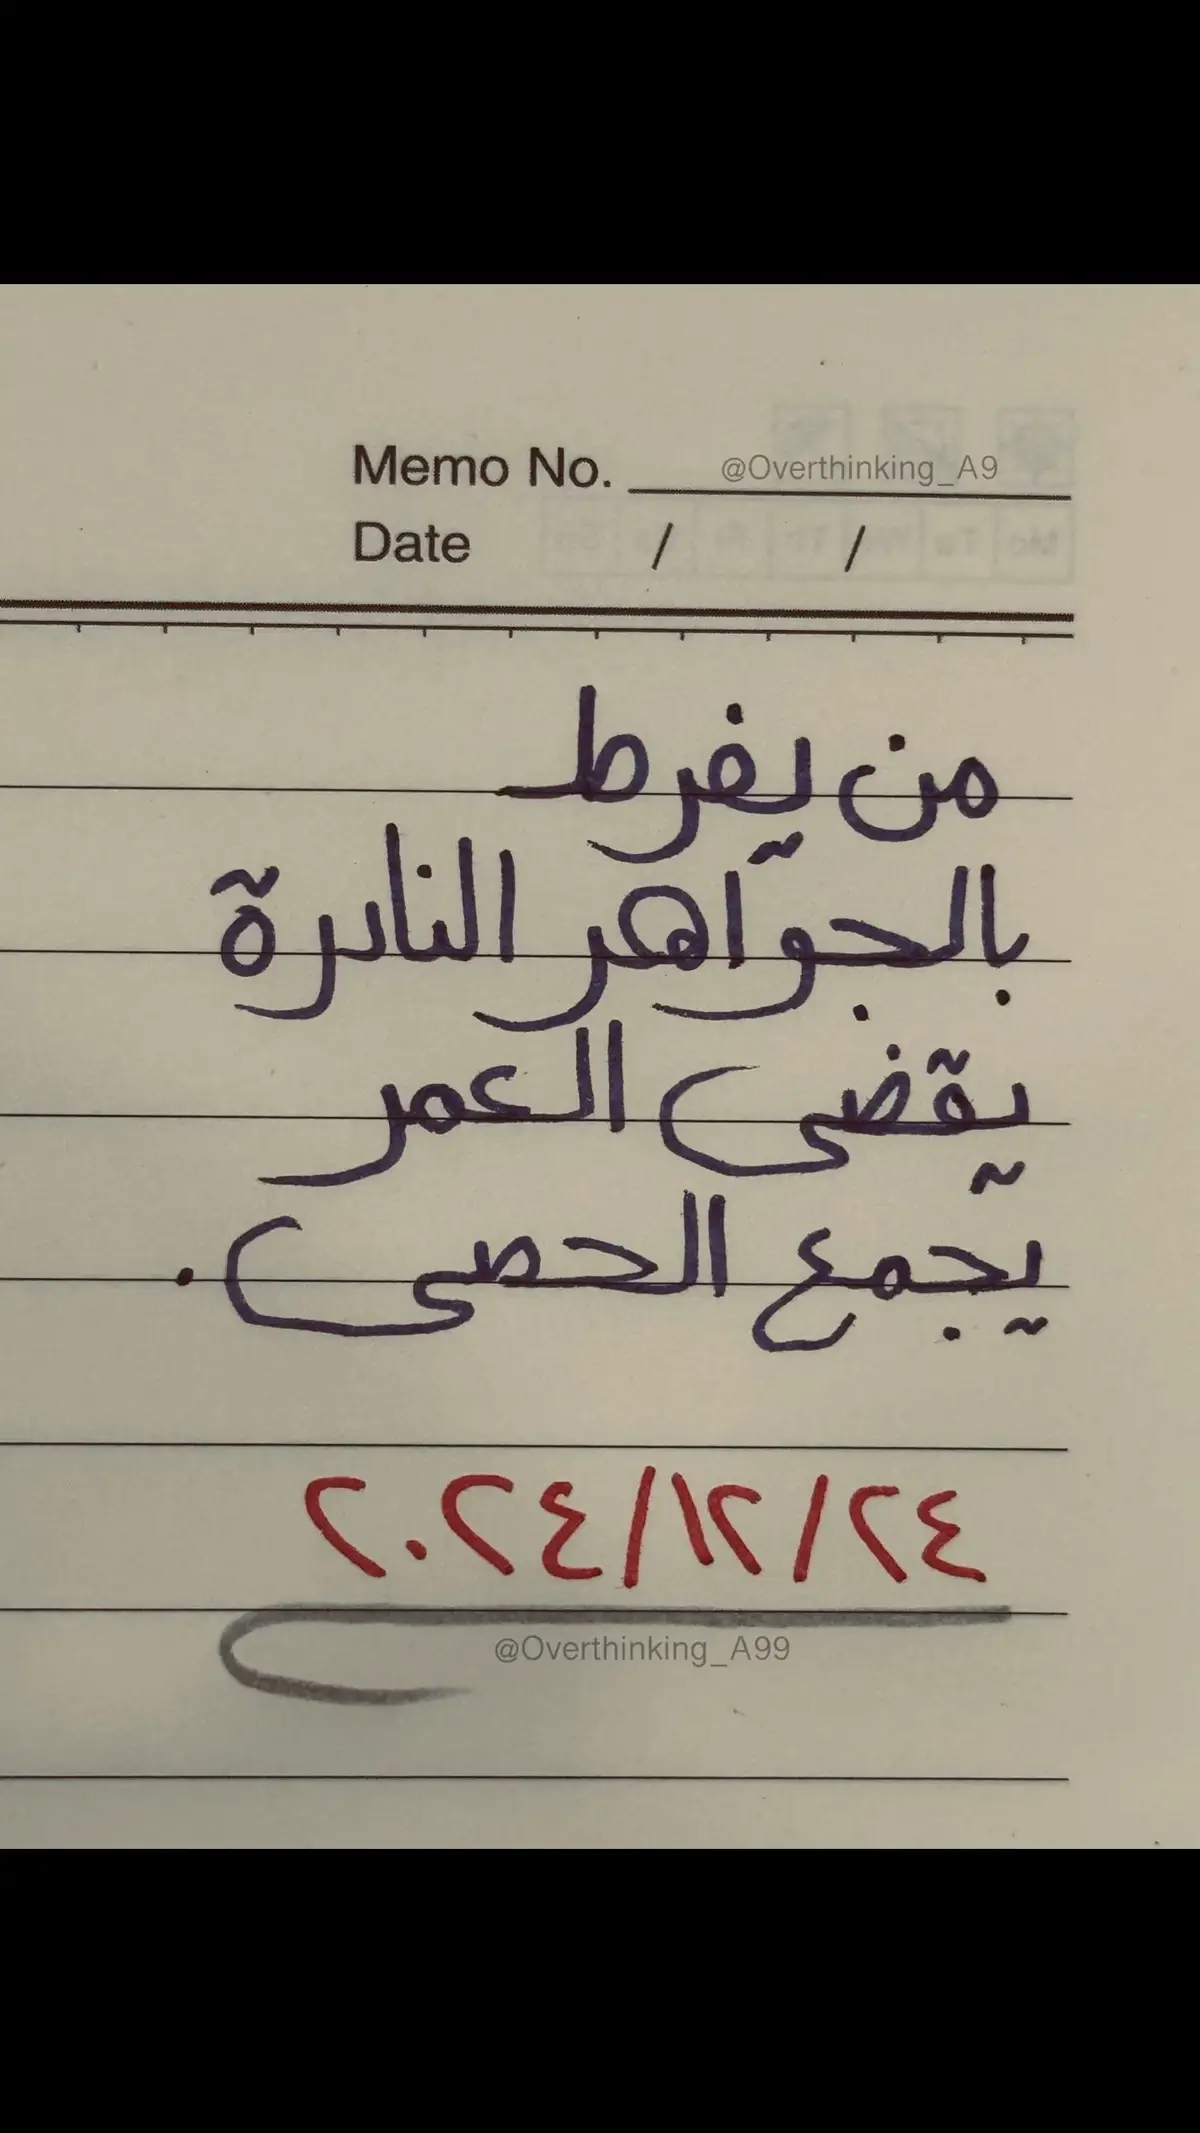 Memo No. @Overthinking_A9
Date / /
من يفرط
بالجواهر النادرة
يقضى العمر
يجمع الحصى .
٢٠٢٤/١٢/٢٤
@Overthinking_A99